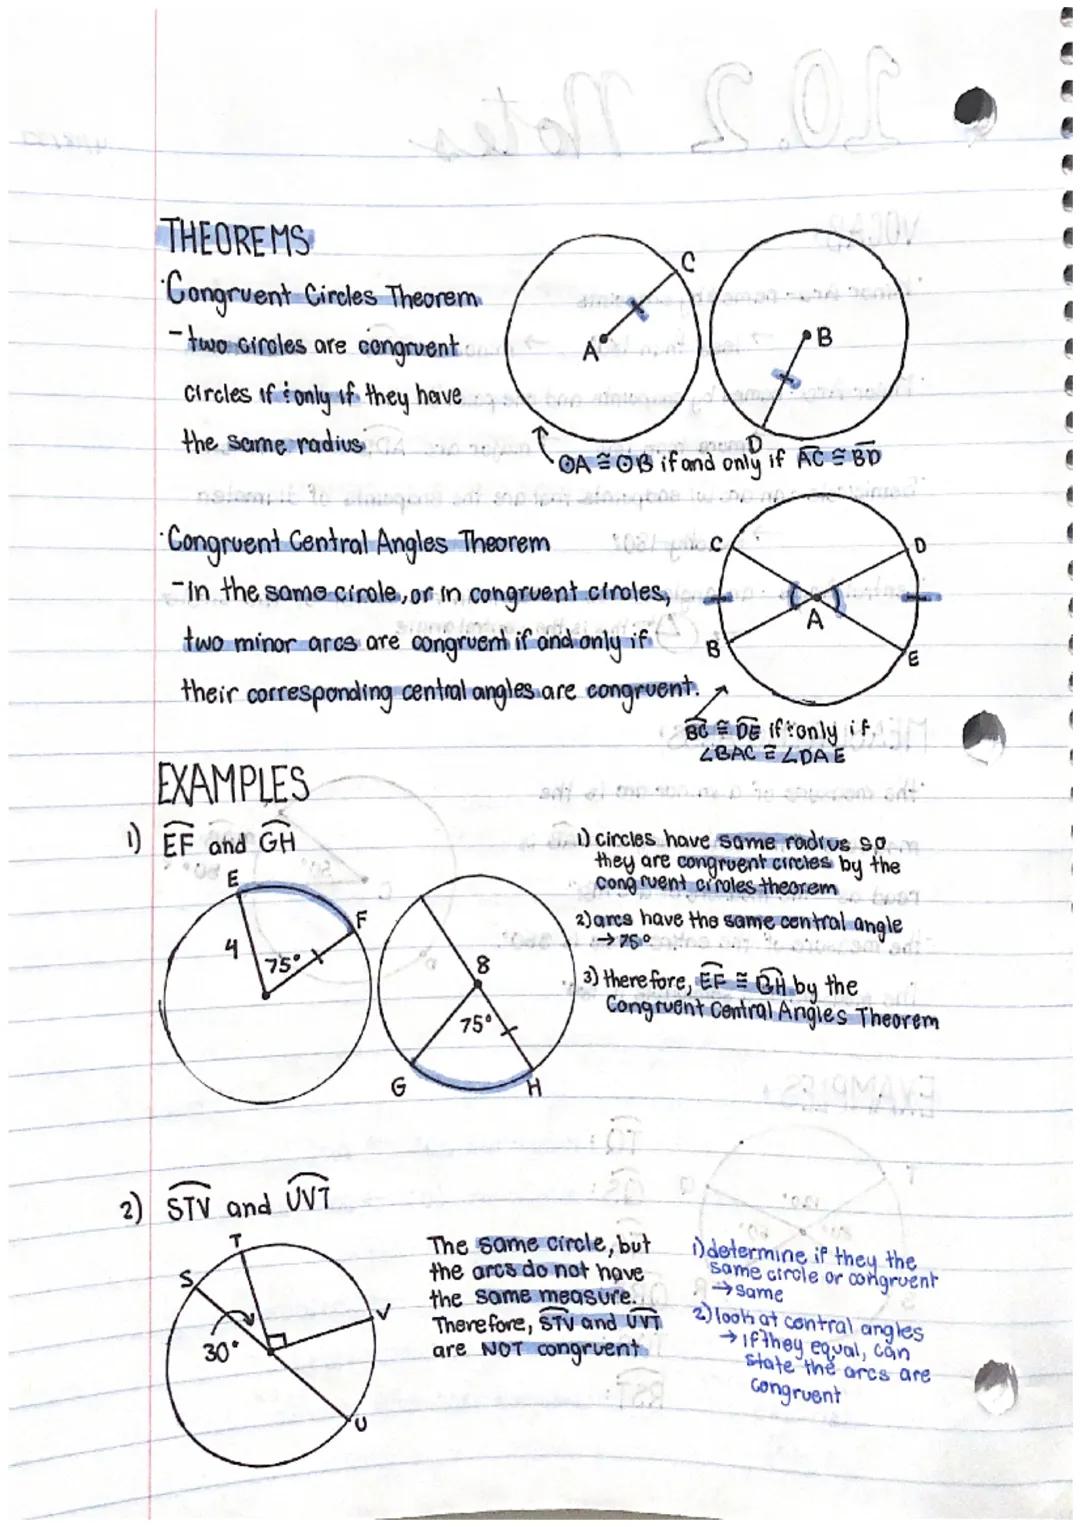 THEOREMS
·Congruent Circles Theorem
-two circles are congruent
circles if & only if they have
the same radius
C
A
B
D
⊙A ≅ ⊙B if and only if A͞C ≅ B͞D
·Congruent Central Angles Theorem
-in the same circle, or in congruent circles,
two minor arcs are congruent if and only if
their corresponding central angles are congruent.
C
D
A
B
E
B͡C ≅ D͡E if & only if
∠BAC ≅ ∠DAE
EXAMPLES
1) E͡F and G͡H
E
F
4
75°
8
75°
G
H
1) circles have same radius so
they are congruent circles by the
congruent circles theorem
2) arcs have the same central angle
→ 75°
3) therefore, E͡F ≅ G͡H by the
Congruent Central Angles Theorem
2) S͡TV and U͡VT
T
S
V
30°
U
The same circle, but
the arcs do not have
the same measure.
Therefore, S͡TV and U͡VT
are NOT congruent
1) determine if they the
same circle or congruent
→ same
2) look at central angles
→ if they equal, can
state the arcs are
congruent